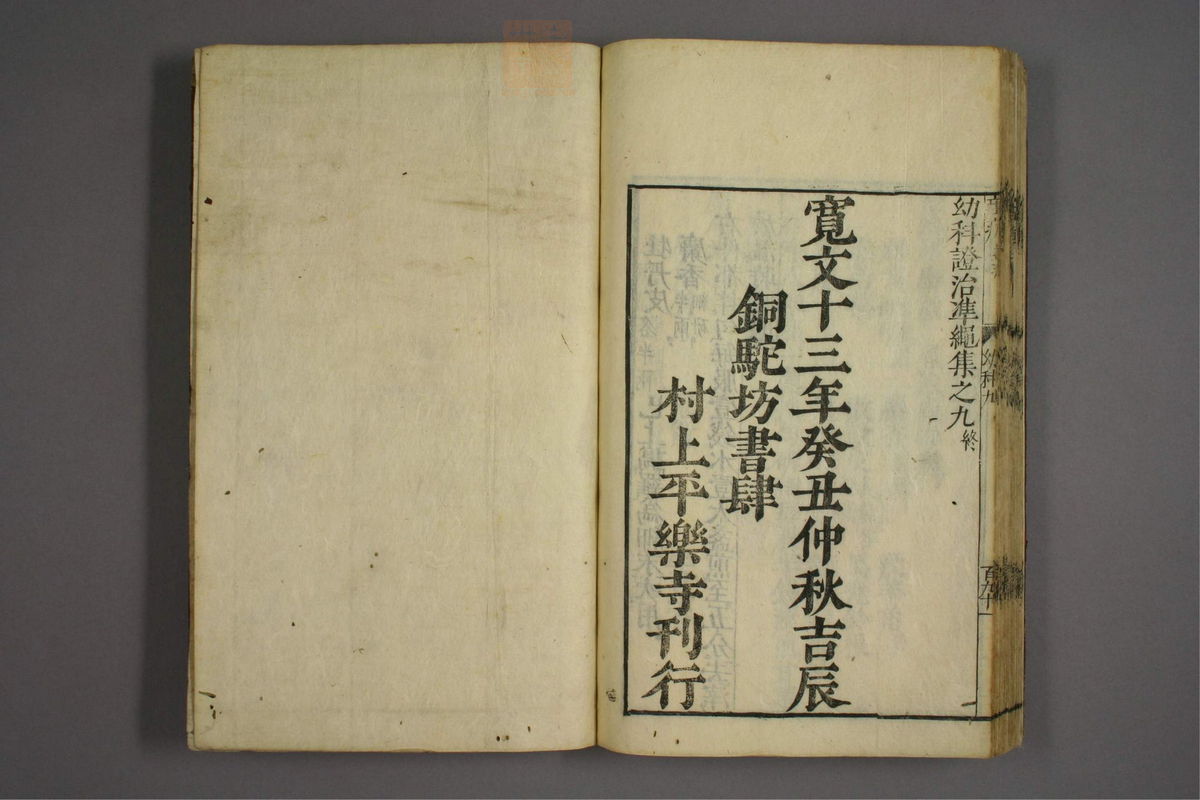 幼科證治凖繩集之九終
寛文十三年癸丑仲秋吉辰
銅駝坊書肆
村上平樂寺刊行
幼科九